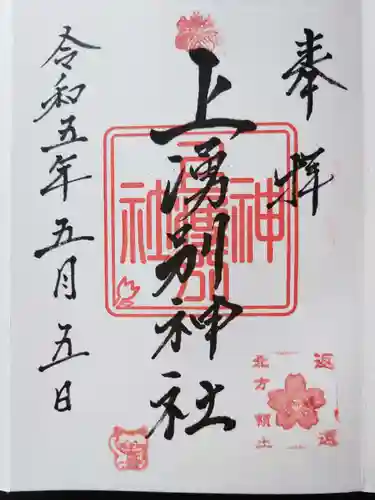 奉拝
上湧別神社
令和五年五月五日
神社
返還
北方領土